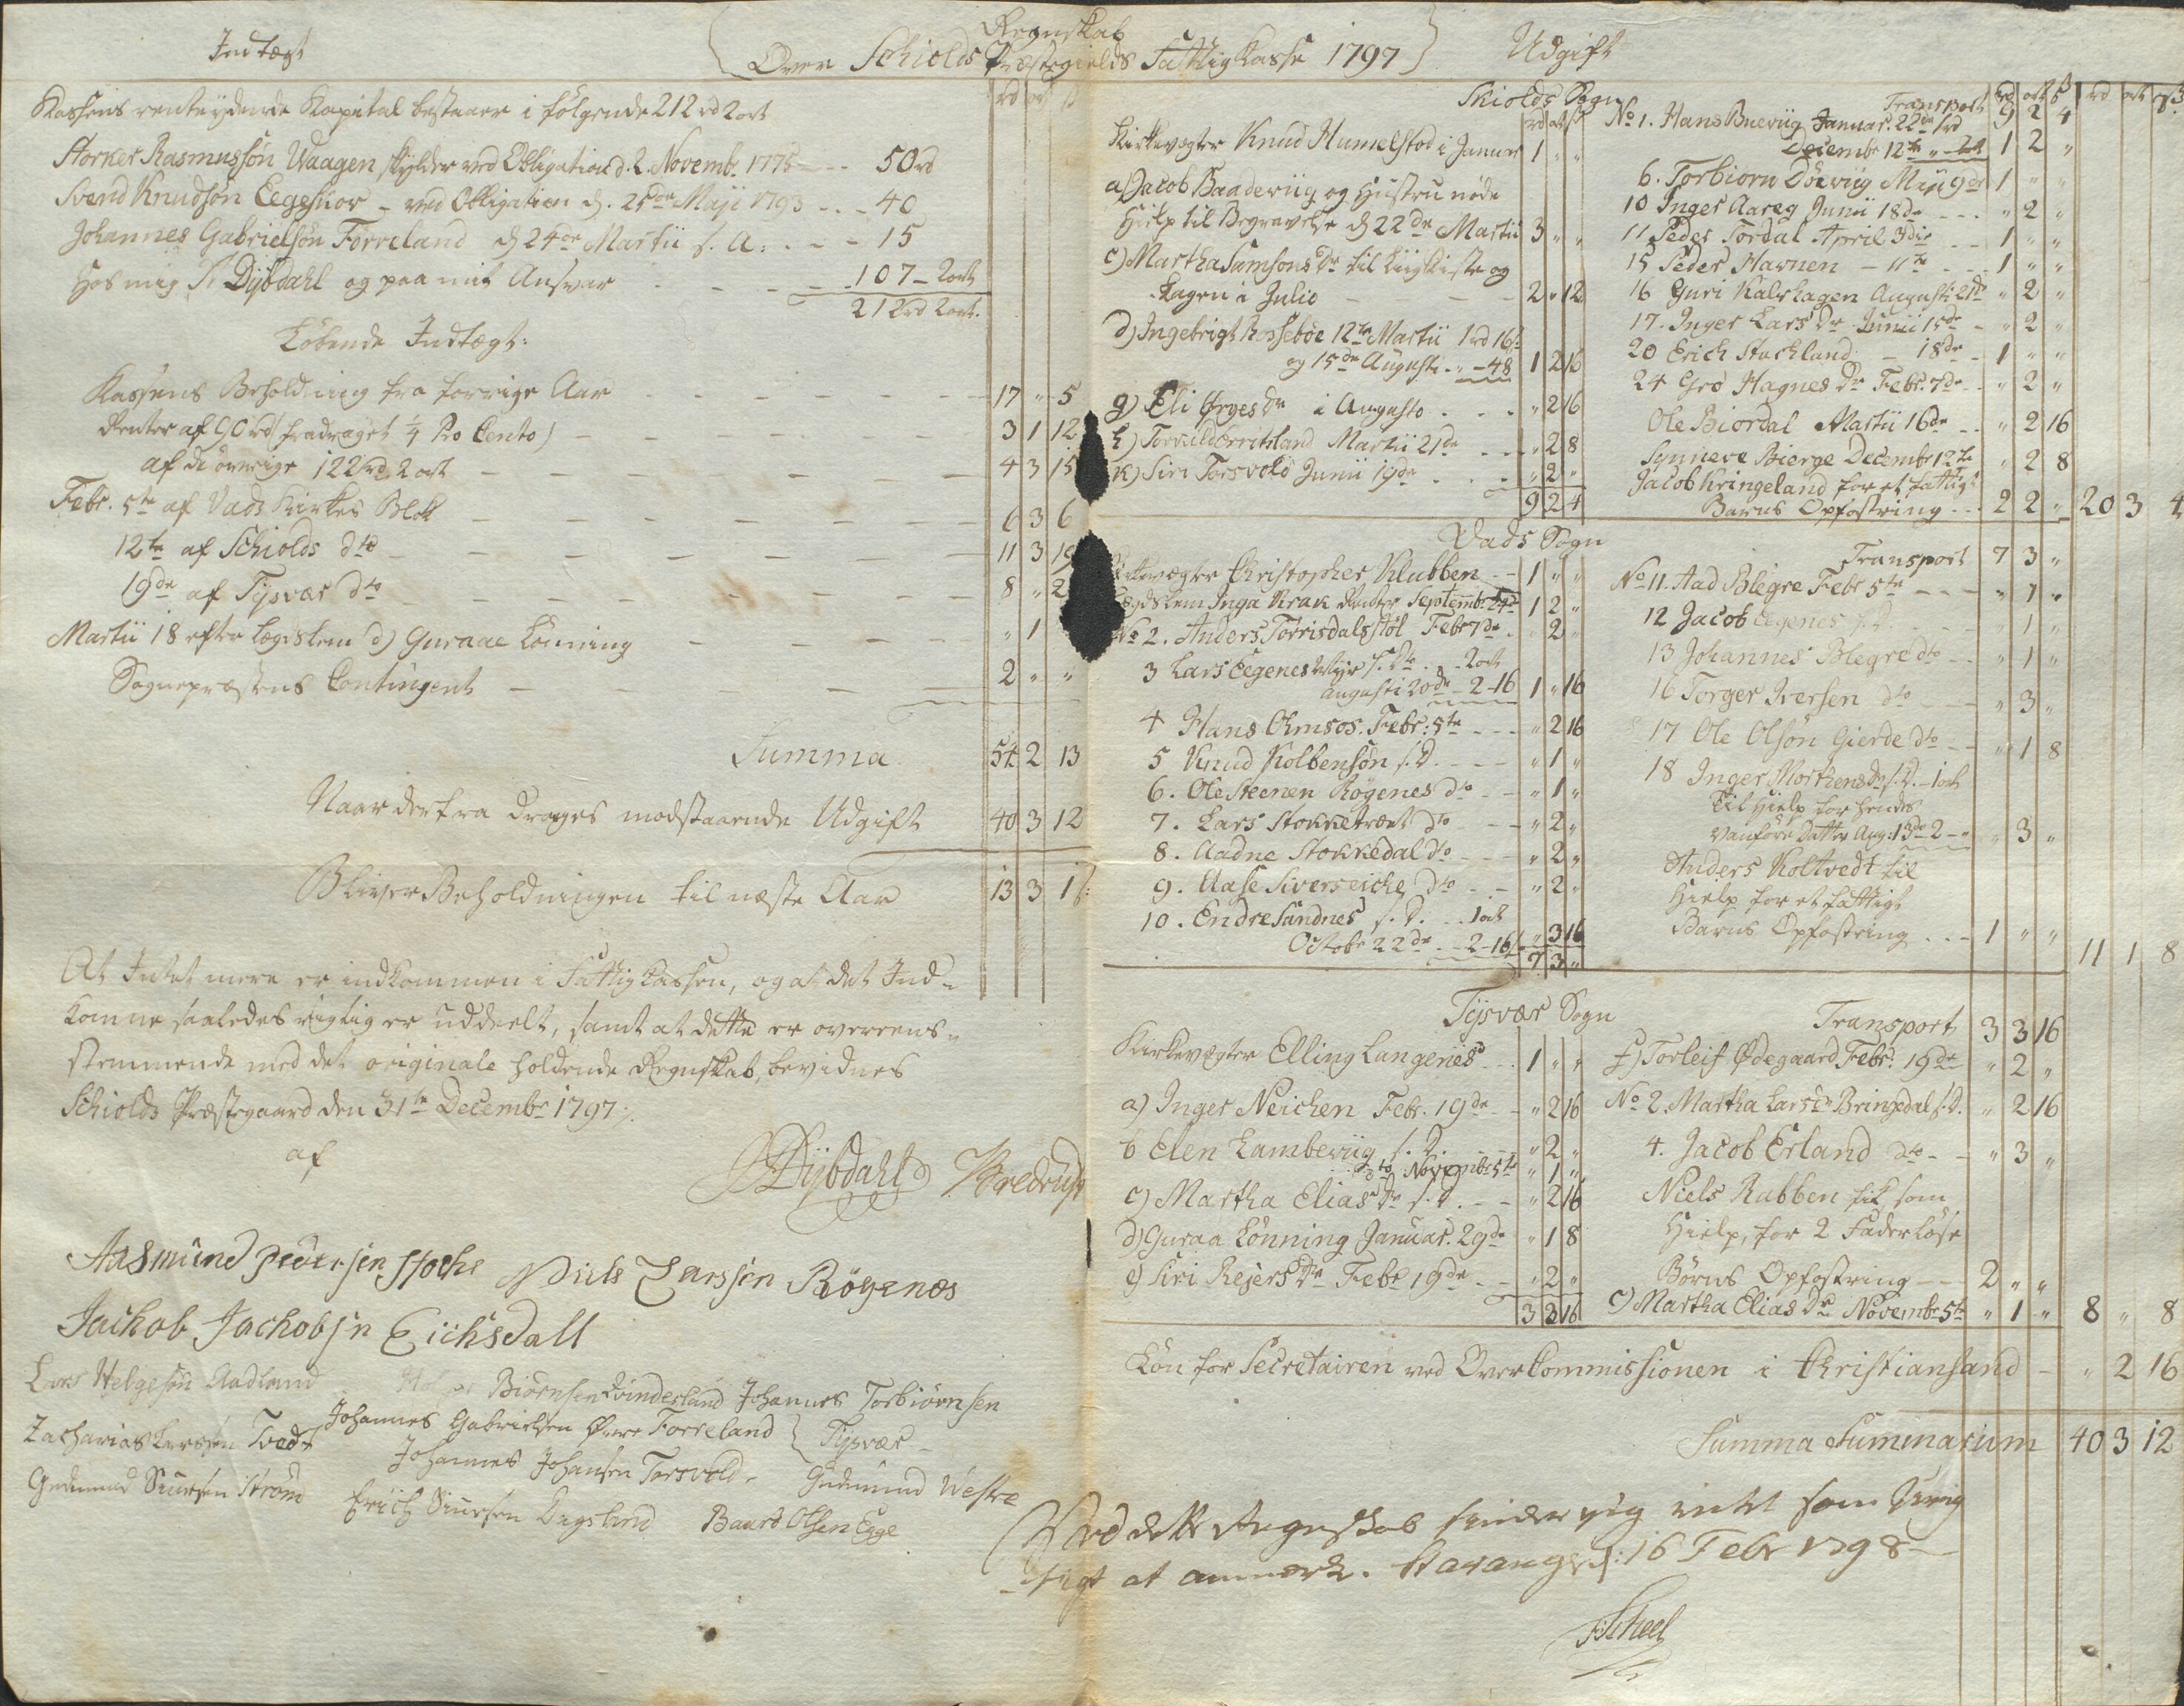 Regnskab
Over Schiolds Præstegields Fattig Kasse 1797
Indtægt
rd ort s
Kassens renteydende Kapital bestaaer i følgende 212 rd 2 ort
Storker Rasmussøn Waagen skylder ved Obligation d. 2. Novemb. 1776 - - 50 rd
Svend Knudsøn Eegesnor - ved Obligation d. 25de Maji 1793 - - 40
Johannes Gabrielsøn Førreland d 24de Martii s. A. - - 15
Hos mig Dybdahl og paa mit Ansvar - - - 107 - 2 ort
212 rd 2 ort.
Løbende Indtægt:
Kassens Beholdning fra forrige Aar - - - 17 " 5
Renter af 90 rd (fradraget ¼ Pro Cento) - - - 3 1 12
af de øvrige 122 rd 2 ort - - - 4 3 15
Febr. 5te af Vads Kirkes Blok - - - 6 3 6
12te af Schiolds dto - - - 11 3 19
19de af Tysvær dto - - - 8 " 2
Martii 18 efter Lægdslem d) Guraae Lønning - - - " 1
Sognepræstens Contingent - - - 2 " "
Summa 54 2 13
Naar derfra drages modstaaende Udgift 40 3 12
Bliver Beholdningen til næste Aar 13 3 1 s:
At Intet mere er indkommen i Fattig Kassen, og at det Ind-
komne saaledes rigtig er uddeelt, samt at dette er overeens-
stemmende med det originale holdende Regnskab, bevidnes
Schiolds Præstegaard den 31te Decembr 1797
af
Dybdahl Bredrup
Aasmund Pedersen Stoche Niels Larssen Rögenæs
Jachob Jachobsn Eichsdall
Lars Helgesøn Aadland Biørnsen Qvindesland Johannes Torbiörnsen
Zacharias Larssen Tvedt Johannes Gabrielsen Øvre Førreland } Tysvær
Gudmund Siursen Strøm Johannes Johansen Torsvold Gudmund Westre
Erich Siursen Baard Olsen Egge
Udgift
Skiolds Sogn
rd ort s
Kirkevægter Knud Humelstod i Januar 1 " "
a) Jacob Baadeviig og Hustru nøde
Hielp til Begravelse d 22de Martii 3 " "
c) Martha Samsons Dr til Liigkiste og
Lagen i Julio - - - 2 " 12
d) Ingebrigt Rossebøe 12te Martii 1 rd 16 s
og 15de Augusti " - 48 1 2 16
g) Eli Ørges Dr i Augusto - - - " 2 16
h) Torvild Martii 21de - - " 2 8
k) Siri Torsvold Junii 19de - - - " 2 "
9 2 4
Transport 9 2 4
rd ort s rd ort s
No 1. Hans Bueviig Januar. 22de 1 rd
Decembr 12te " 1 2 "
6. Torbiorn Döeviig Maji 9de 1 " "
10 Inger Aareg Junii 18de - - " 2 "
11 Peder Tordal April 3die - - 1 " "
15 Peder Havnen - 11te - - 1 " "
16 Guri Kalshagen Augusti 21de " 2 "
17. Inger Lars Dr Junii 15de - " 2 "
20 Erich Stachland - 18de - 1 " "
24 Gro Hagnes Dr Febr. 7de - " 2 "
Ole Biordal Martii 16de - " 2 16
Synneve Bierge Decembr 12te " 2 8
Jacob Kringeland for et fattigt
Barns Opfostring - - 2 2 " 20 3 4
Vads Sogn
Kirkevægter Christopher Klubben - - 1 " "
Lægdslem Inga Krak Septembr 24de 1 2 "
No 2. Anders Torrisdalsstøl Febr 7de " 2 "
3 Lars Eegenes Myr s. D. - - 2 ort
Augusti 20de - 2 - 16 1 " 16
4 Hans Ohmsos. Febr. 5te - - " 2 16
5 Knud Kolbensön s. D. - - " 1 "
6. Ole Steenen Rögenes dto - - " 1 "
7. Lars Stokketræet dto - - " 2 "
8. Aadne Stokkedal dto - - " 2 "
9. Aase Siverseiche dto - - " 2 "
10. Endre Sandnes s. D. - - 1 ort
Octobr 22de - 2 - 16 " 3 16
7 3 "
Transport 7 3 "
No 11. Aad Blegre Febr 5te - - " 1 "
12 Jacob Eegenes s. D - - " 1 "
13 Johannes Blegre dto - - " 1 "
16 Torger Iversen dto - - " 3 "
17 Ole Olsön Gierde dto - - " 1 8
18 Inger Morthens Dr s. D. - 1 ort
Til Hielp for hendes
vanföre Datter Aug. 13de 2 - " " 3 "
Anders Koltvedt til
Hielp for et fattigt
Barns Opfostring - - 1 " " 11 1 8
Tysvær Sogn
Kirkevægter Elling Langenes - - 1 " "
a) Inger Neichen Febr. 19de - " 2 16
b Elen Lambeviig s. D. - " 2 "
dto Novembr 5te " 1 "
c) Martha Elias Dr s. D. - - " 2 16
d) Guraa Lönning Januar. 29de " 1 8
e) Siri Rejers Dr Febr 19de - - " 2 "
3 3 16
Transport 3 3 16
f) Torleif Ødegaard Febr. 19de " 2 "
No 2. Martha Lars Dr Bringedal s. D. " 2 16
4. Jacob Erland dto - - " 3 "
Niels Rabben fik som
Hielp, for 2 Faderløse
Børns Opfostring - - 2 " "
c) Martha Elias Dr Novembr 5te " 1 " 8 " 8
Løn for Secretairen ved Over Commissionen i Christiansand - " 2 16
Summa Summarum 40 3 12
Ved dette Regnskab finder jeg intet som
at anmærke. Stavanger d: 16 Febr 1798
Scheel